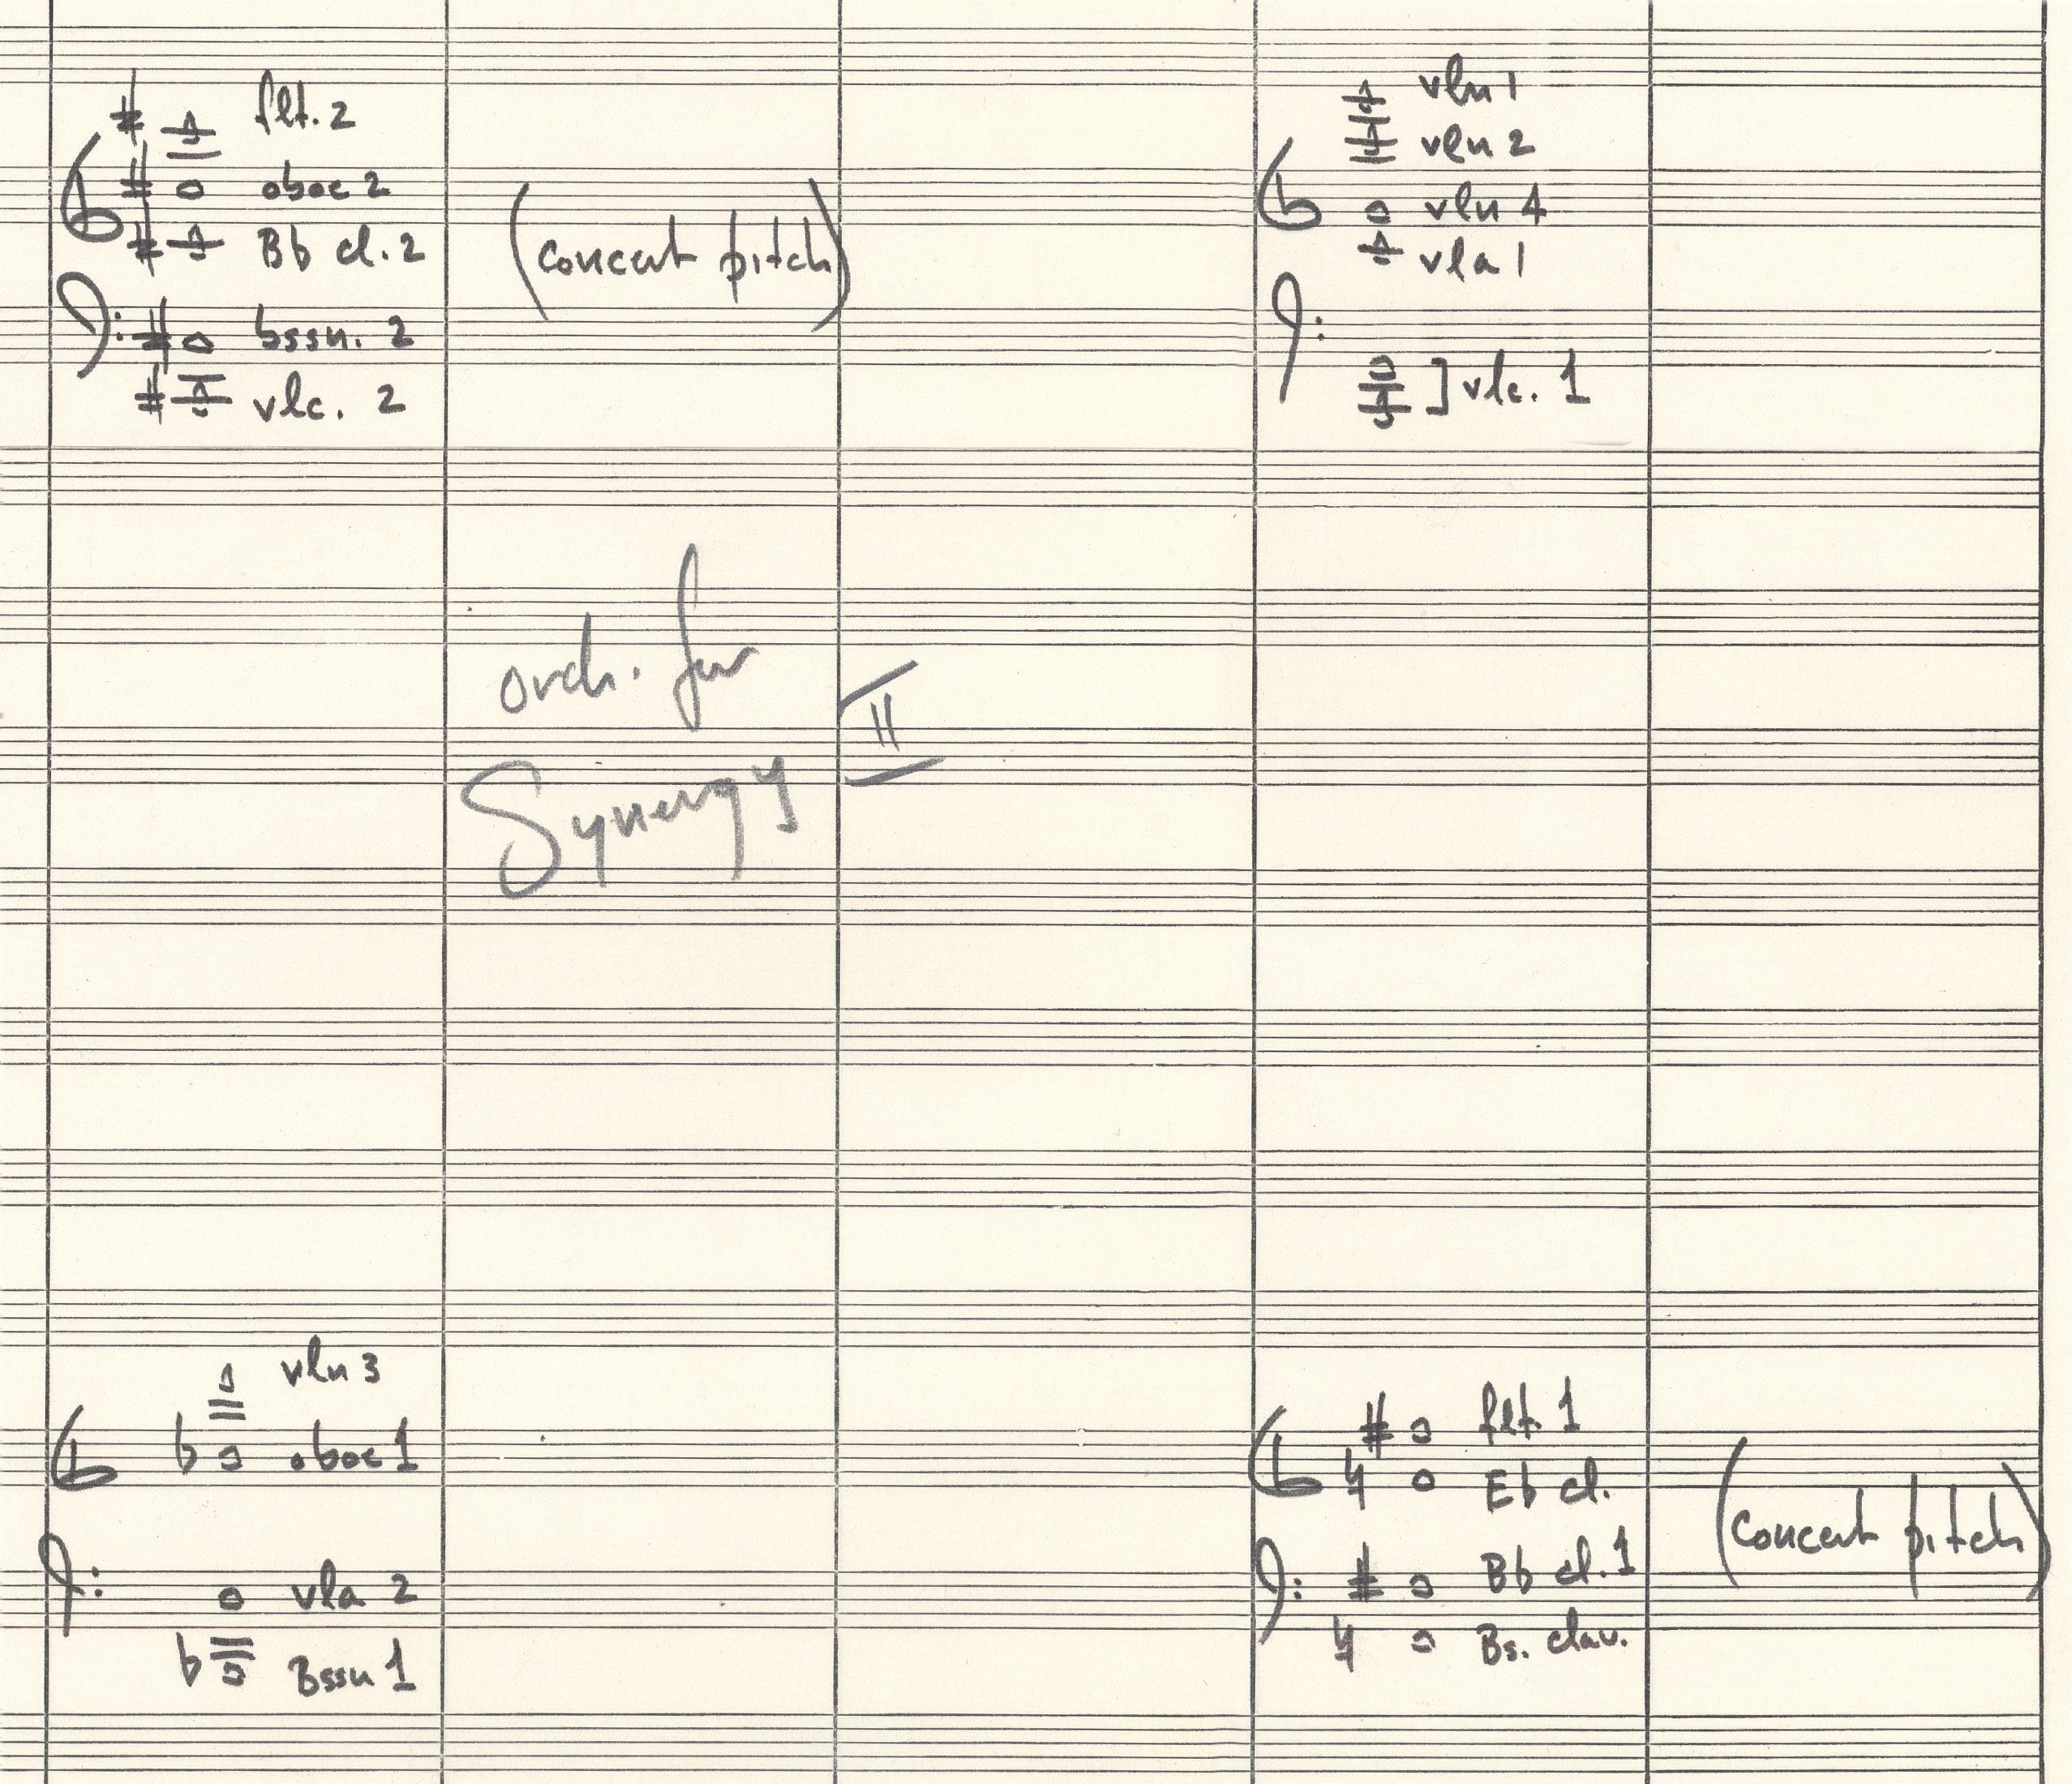 flt. 2
oboe 2
Bb cl. 2
bssn. 2
vlc. 2
(concert pitch)
vln 1
vln 2
vln 4
vla 1
] vlc. 1
orch. for
Synergy II
vln 3
oboe 1
vla 2
Bssn 1
flt. 1
Eb cl.
Bb cl. 1
Bs. clar.
(concert pitch)